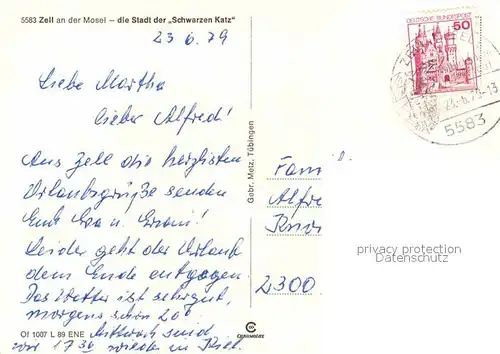 5583 Zell an der Mosel — die Stadt der „Schwarzen Katz"
23 6. 79
Liebe Martha
lieber Alfred!
Aus Zell die herzlichsten
Urlaubsgrüße senden
Euch Eva u. Erwin!
Leider geht der Urlaub
dem Ende entgegen
Das Wetter ist sehr gut,
morgens schon 20°
Of 1007 L 89 ENE
Mittwoch sind
wir 17 30 wieder in Kiel.
Gebr. Metz, Tübingen
DEUTSCHE BUNDESPOST
50
-13
5583
Fam
Alfre
2300
privacy protection
Datenschutz